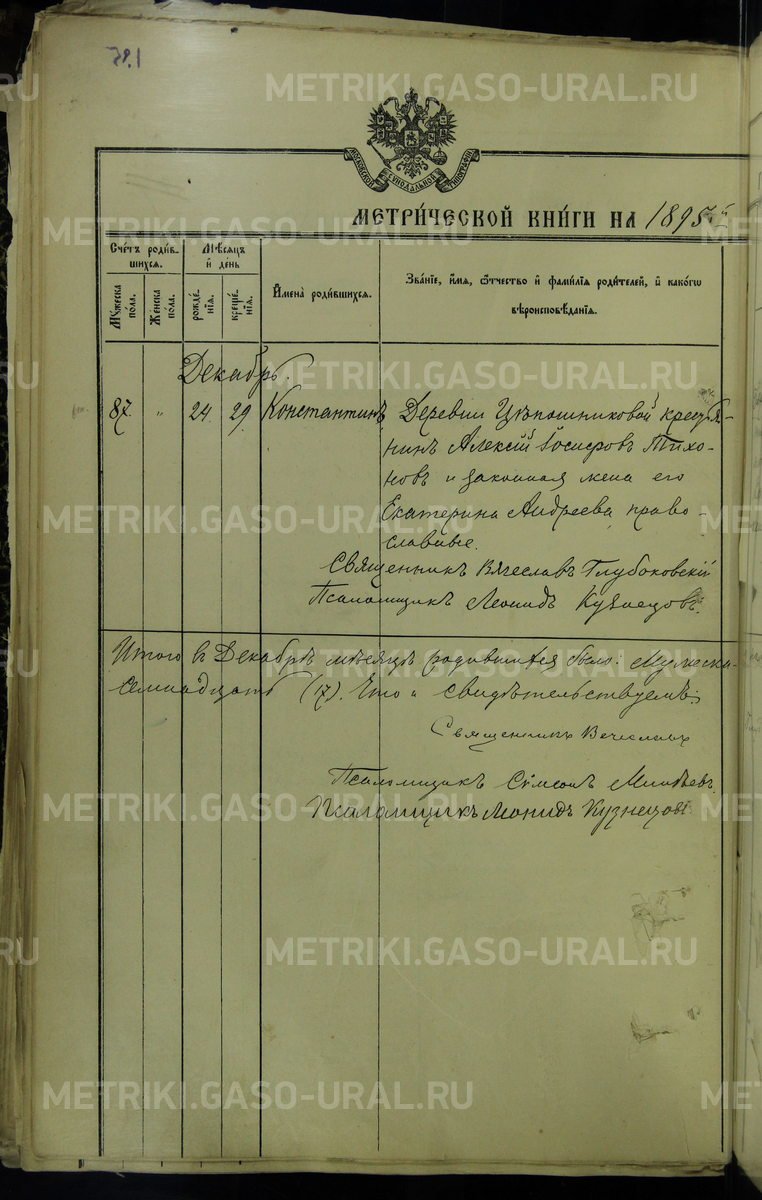 МОСКОВСКОЙ СѴНОДАЛЬНОЙ ТИПОГРАФІИ
МЕТРИ́ЧЕСКОЙ КНИ́ГИ НА 1895й
Сче́тъ роди́вшихся.
Мꙋ́жеска по́ла.
Же́нска по́ла.
Мѣ́сяцъ и҆ де́нь
рожде́нїѧ.
креще́нїѧ.
И҆мена̀ роди́вшихсѧ.
Зва́нїе, и҆́мѧ, ѻ҆́тчество и҆ фами́лїѧ роди́телей, и҆ како́гѡ
вѣроисповѣ́данїѧ.
Декабрь.
87. " 24. 29. Константинъ Деревни Цѣпошниковой крестья-
нинъ Алексій Іосифовъ Тихо-
новъ и законная жена его
Екатерина Андреева, право-
славные.
Священникъ Вячеславъ Глубоковскій
Псаломщикъ Леонидъ Кузнецовъ.
Итого въ Декабрѣ мѣсяцѣ родившихся было: Мужеска-
семнадцать (17). Что и свидѣтельствуемъ:
Священникъ Вячеславъ
Псаломщикъ Сѵмеонъ
Псаломщикъ Леонидъ Кузнецовъ
METRIKI.GASO-URAL.RU